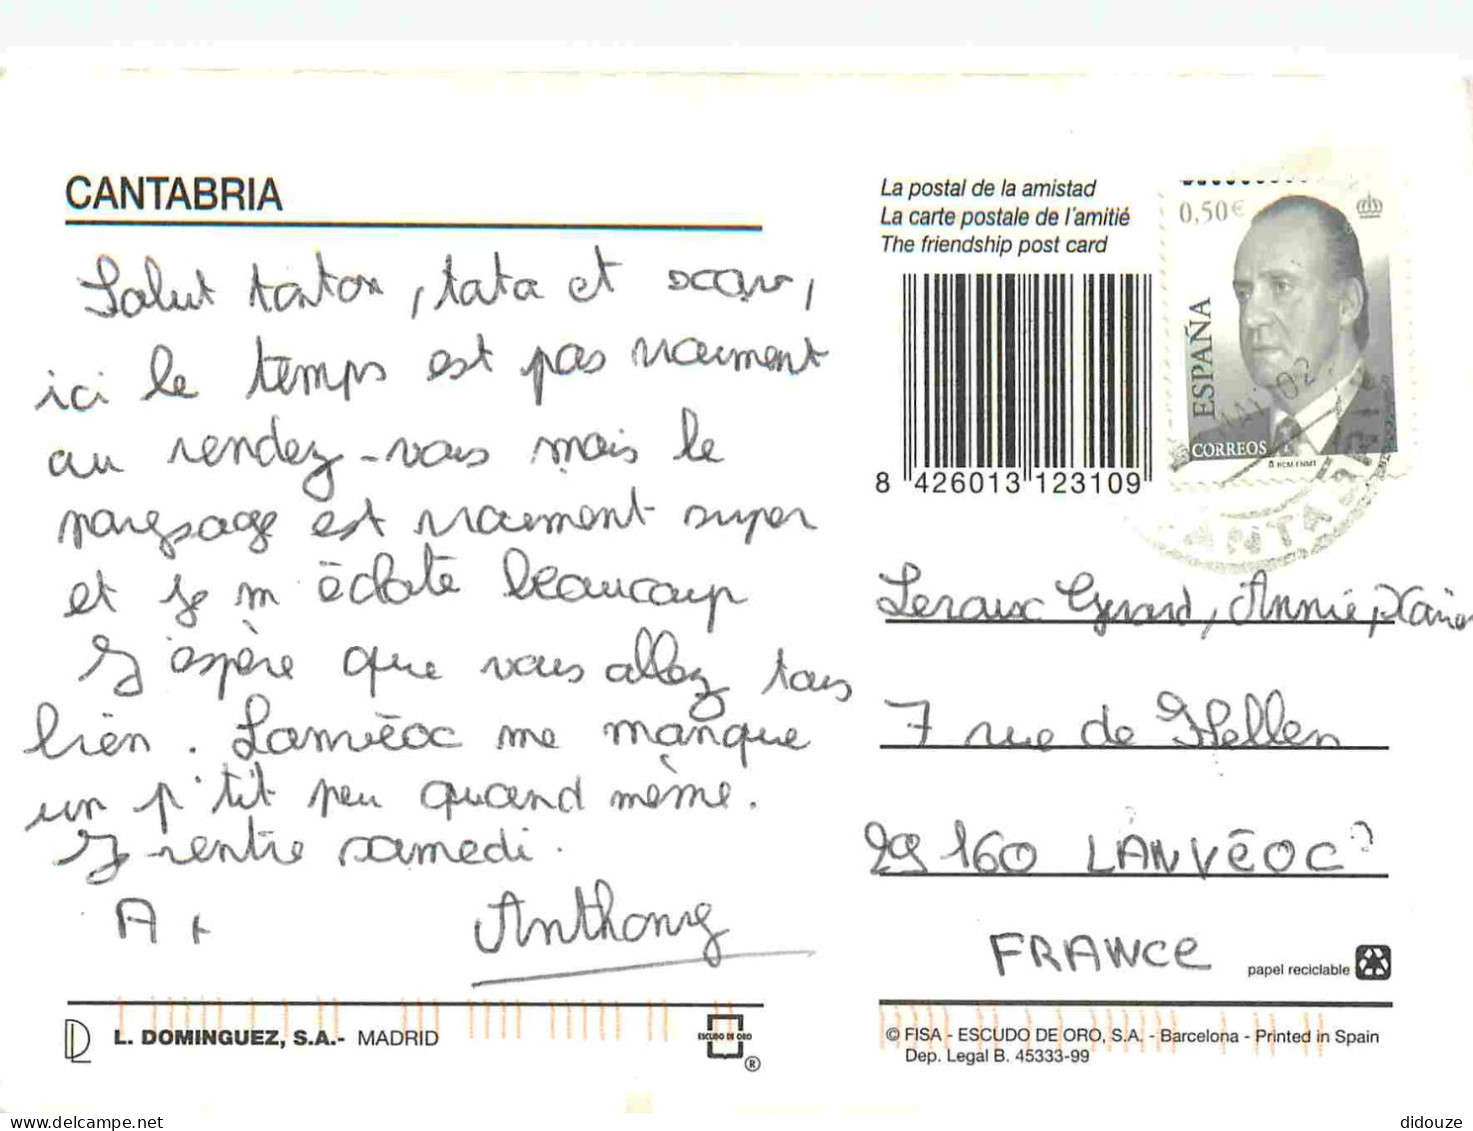 CANTABRIA
Salut tonton, tata et
ici le temps est pas vraiment
au rendez-vous mais le
paysage est vraiment super
et je m'éclate beaucoup
J'espère que vous allez tous
bien. Lanvéoc me manque
un p'tit peu quand même.
J rentre samedi.
A +
Anthony
L. DOMINGUEZ, S.A.- MADRID
ESCUDO DE ORO
®
La postal de la amistad
La carte postale de l'amitié
The friendship post card
8 426013 123109
0,50€
ESPAÑA
CORREOS
RCM-FNMT
MAY 02
Leroux Gérard, Annie,
7 rue de
29160 LANVÉOC
FRANCE
papel reciclable
© FISA - ESCUDO DE ORO, S.A. - Barcelona - Printed in Spain
Dep. Legal B. 45333-99
didouze